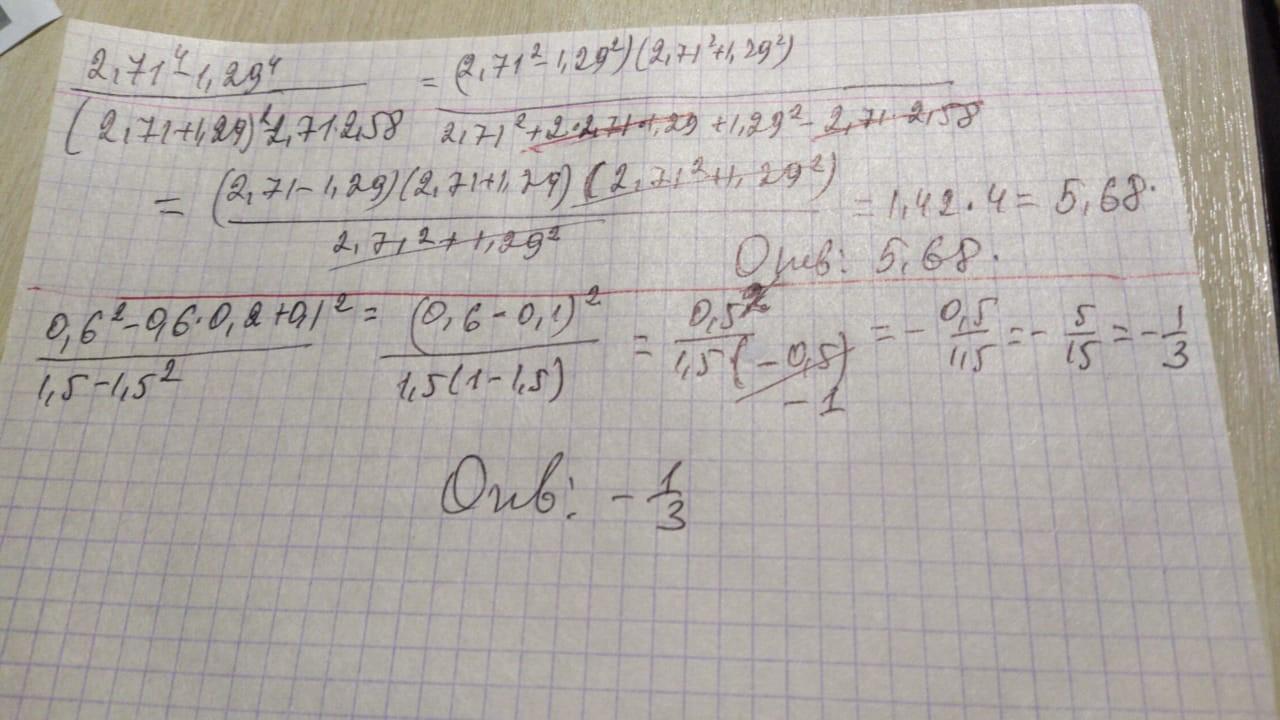 2,71⁴-1,29⁴ / (2,71+1,29)²-2,71·2,58 = (2,71²-1,29²)(2,71²+1,29²) / 2,71²+2·2,71·1,29+1,29²-2,71·2,58
= (2,71-1,29)(2,71+1,29)(2,71²+1,29²) / 2,71²+1,29² = 1,42·4=5,68.
Отв: 5,68.
0,6²-0,6·0,2+0,1² / 1,5-1,5² = (0,6-0,1)² / 1,5(1-1,5) = 0,5² / 1,5(-0,5) = - 0,5/1,5 = - 5/15 = - 1/3
-1
Отв: - 1/3